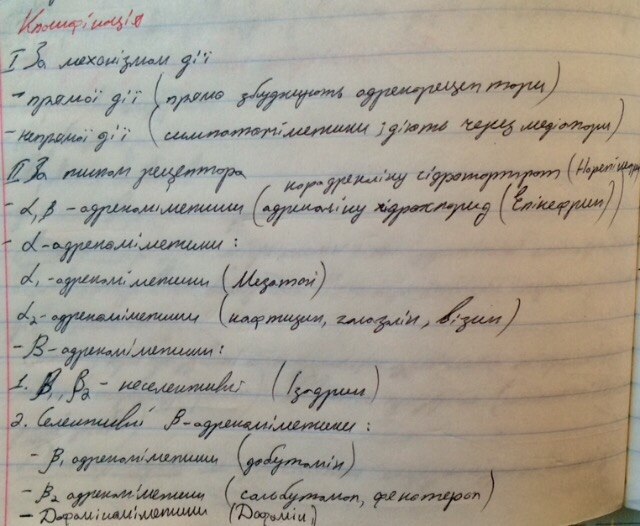 Класифікація
I За механізмом дії
- прямої дії (прямо збуджують адренорецептори)
- непрямої дії (симпатоміметики, діють через медіатори)
II За типом рецептора
норадреналіну гідротартрат (Норепінефрин)
- α,β - адреноміметики (адреналіну гідрохлорид (Епінефрин))
- α-адреноміметики:
α₁-адреноміметики (Мезатон)
α₂-адреноміметики (нафтизин, галазолін, візин)
- β-адреноміметики:
1. β₁, β₂ - неселективні (Ізадрин)
2. Селективні β-адреноміметики:
- β₁ адреноміметики (добутамін)
- β₂ адреноміметики (сальбутамол, фенотерол)
- Дофаміноміметики (Дофамін)